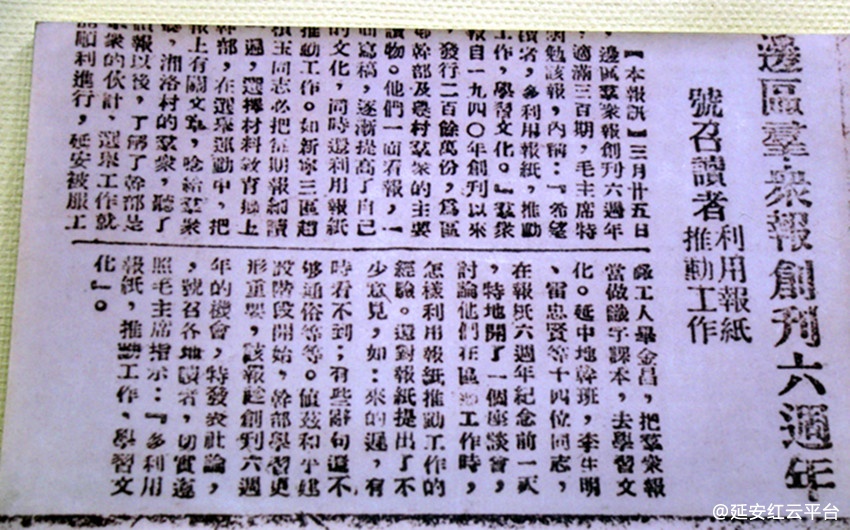 邊區羣衆報創刊六週年
號召讀者
利用報紙
推動工作
【本報訊】三月廿五日
，邊區羣衆報創刊六週年
，適滿三百期，毛主席特
勉該報，內稱：『希望
讀者，多利用報紙，推動
工作，學習文化。』羣衆
報自一九四〇年創刊以來
，發行二百餘萬份，爲區
鄉幹部及農村羣衆的主要
讀物。他們一面看報，一
面寫稿，逐漸提高了自己
的文化，同時還利用報紙
推動工作。如新寧三區趙
玉同志必把每期報細讀
一遍，選擇材料教育鄉上
幹部，在選舉運動中，把
報上有關文章，唸給羣衆
聽，湘洛村的羣衆，聽了
讀報以後，了解了幹部是
羣衆的伙計，選舉工作就
順利進行，延安被服工
廠工人畢金昌，把羣衆報
當做識字課本，去學習文
化。延中地幹班，李生明
、雷忠賢等十四位同志，
在報紙六週年紀念前一天
，特地開了一個座談會，
討論他們在區鄉工作時，
怎樣利用報紙推動工作的
經驗。還對報紙提出了不
少意見，如：來的遲，有
時看不到；有些辭句還不
够通俗等等。值茲和平建
設階段開始，幹部學習更
形重要，該報趁創刊六週
年的機會，特發表社論，
，號召各地讀者，切實遵
照毛主席指示：『多利用
報紙，推動工作、學習文
化』。
@延安红云平台